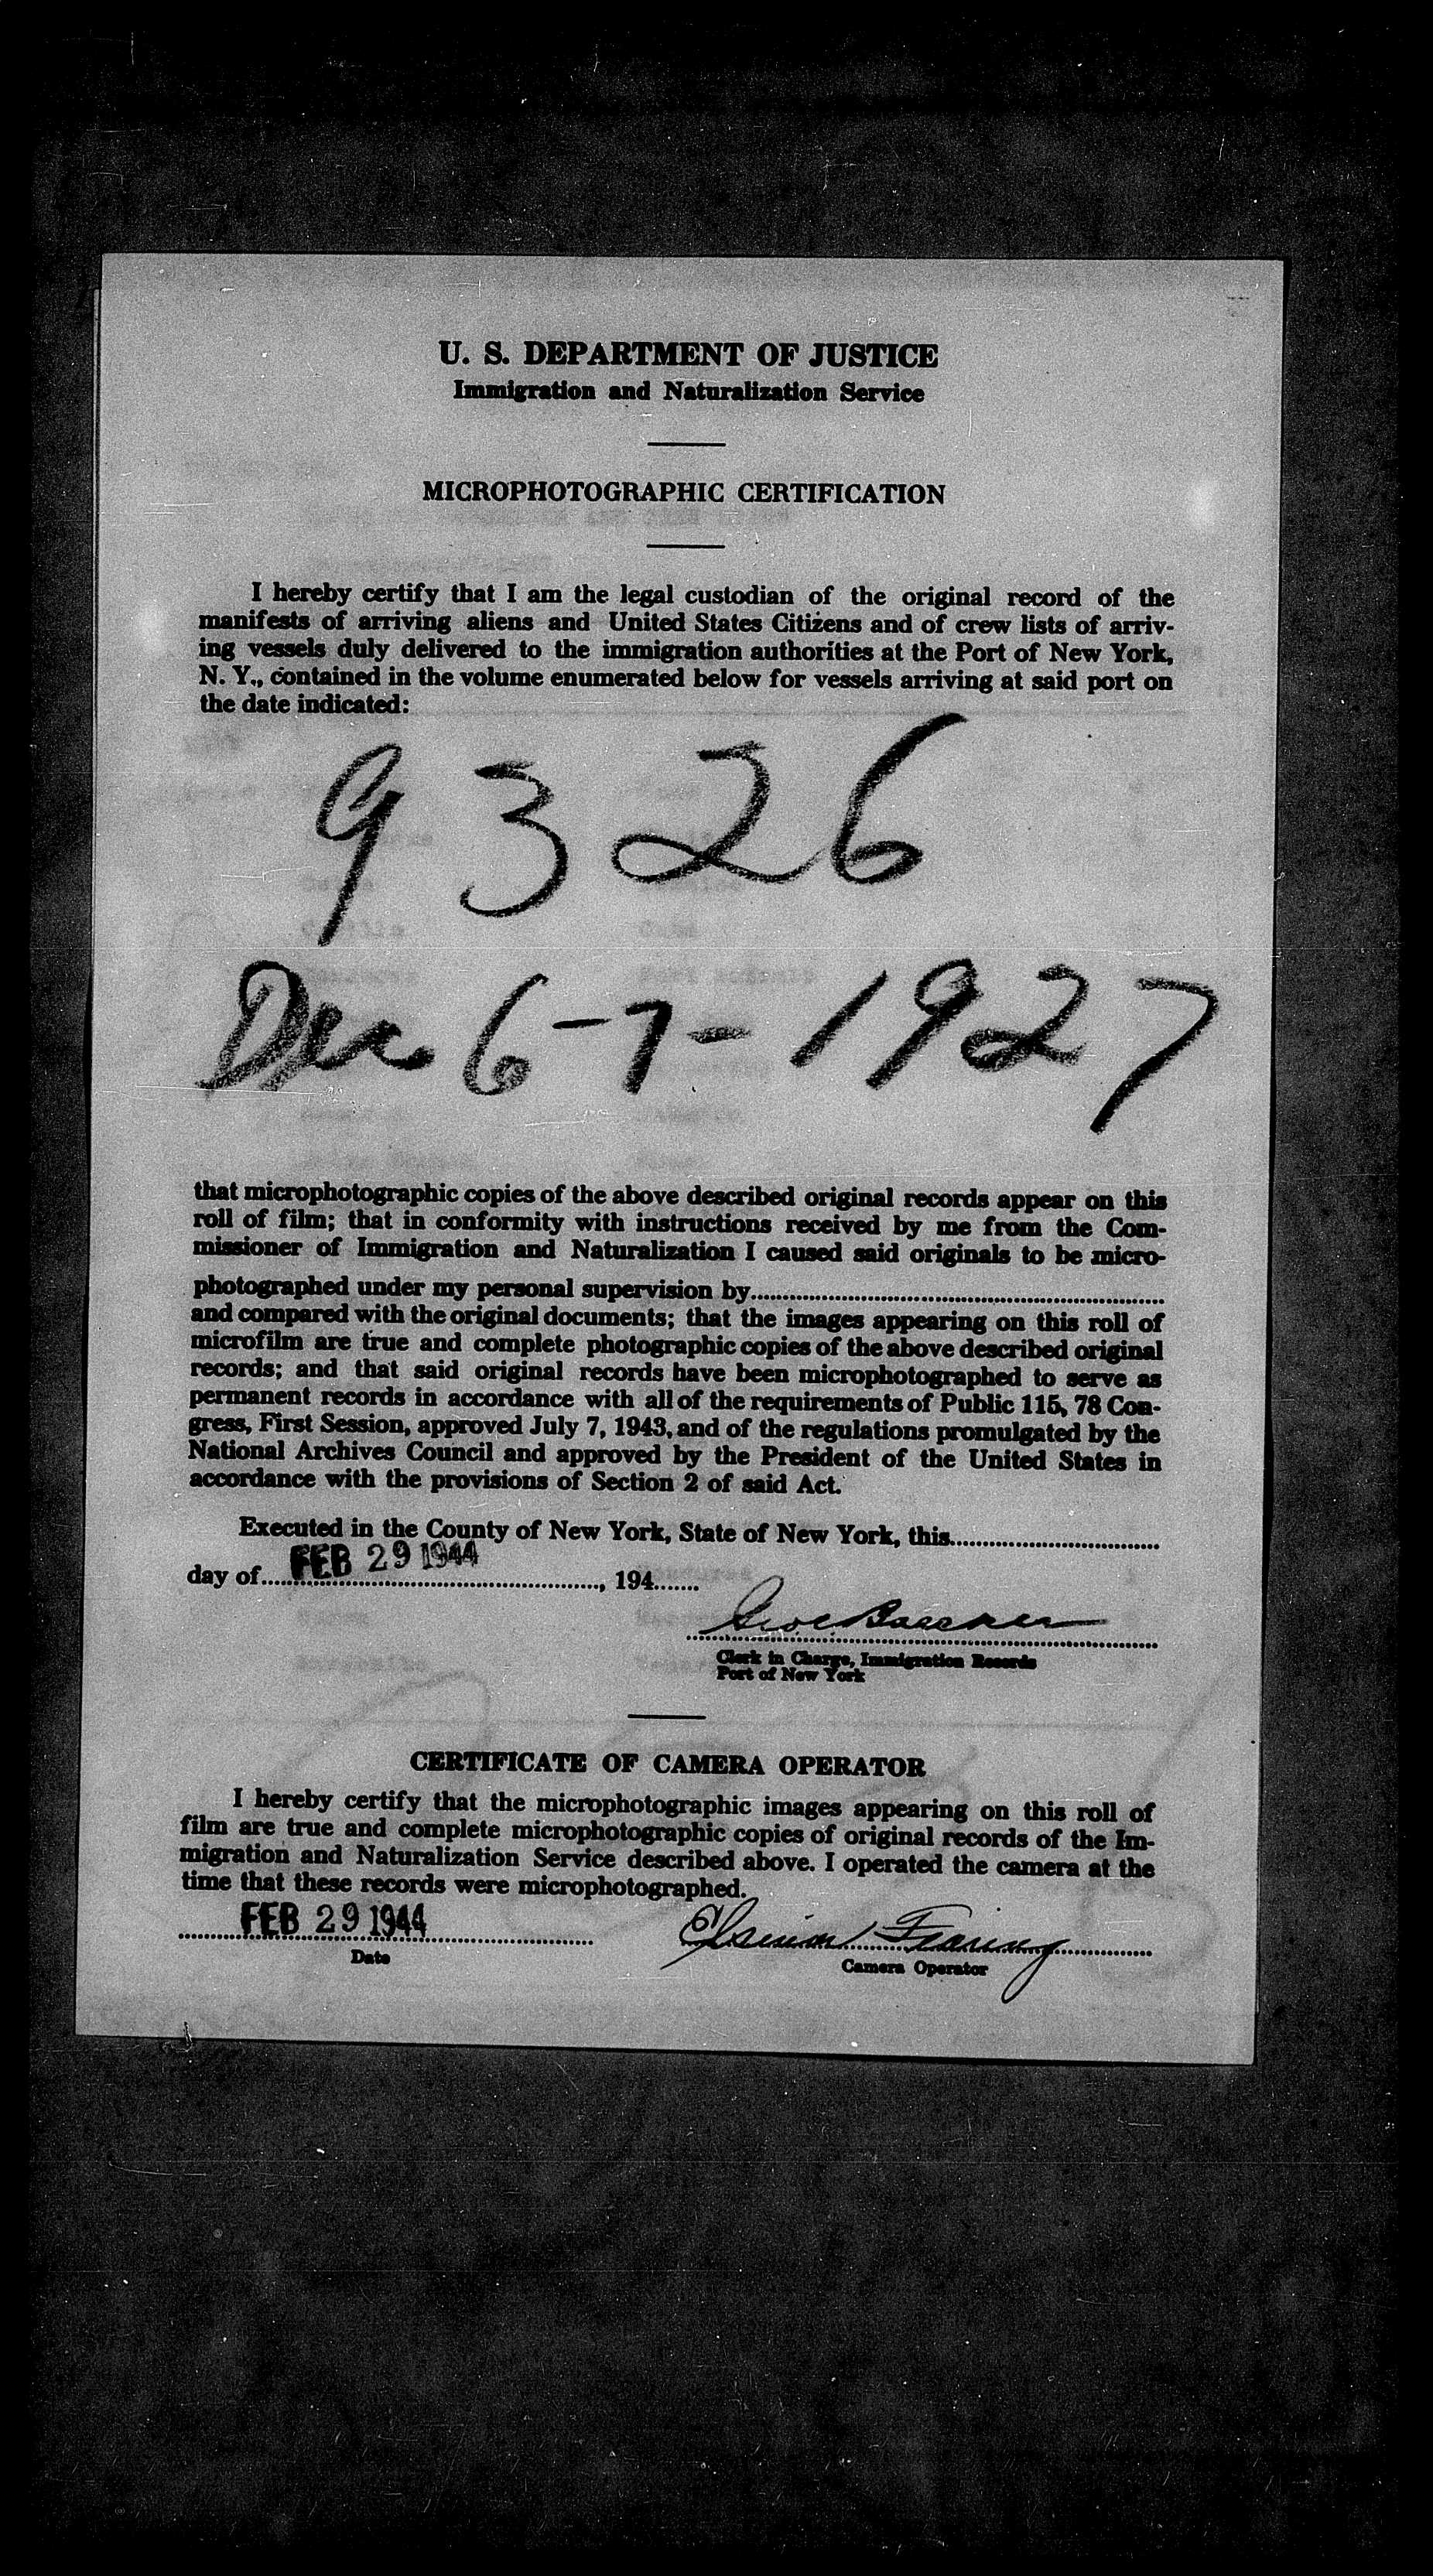 U. S. DEPARTMENT OF JUSTICE
Immigration and Naturalization Service
MICROPHOTOGRAPHIC CERTIFICATION
I hereby certify that I am the legal custodian of the original record of the
manifests of arriving aliens and United States Citizens and of crew lists of arriv-
ing vessels duly delivered to the immigration authorities at the Port of New York,
N. Y., contained in the volume enumerated below for vessels arriving at said port on
the date indicated:
9326
Dec 6-7-1927
that microphotographic copies of the above described original records appear on this
roll of film; that in conformity with instructions received by me from the Com-
missioner of Immigration and Naturalization I caused said originals to be micro-
photographed under my personal supervision by
and compared with the original documents; that the images appearing on this roll of
microfilm are true and complete photographic copies of the above described original
records; and that said original records have been microphotographed to serve as
permanent records in accordance with all of the requirements of Public 115, 78 Con-
gress, First Session, approved July 7, 1943, and of the regulations promulgated by the
National Archives Council and approved by the President of the United States in
accordance with the provisions of Section 2 of said Act.
Executed in the County of New York, State of New York, this
day of FEB 29 1944, 194
Clerk in Charge, Immigration Records
Port of New York
CERTIFICATE OF CAMERA OPERATOR
I hereby certify that the microphotographic images appearing on this roll of
film are true and complete microphotographic copies of original records of the Im-
migration and Naturalization Service described above. I operated the camera at the
time that these records were microphotographed.
FEB 29 1944
Date
Camera Operator